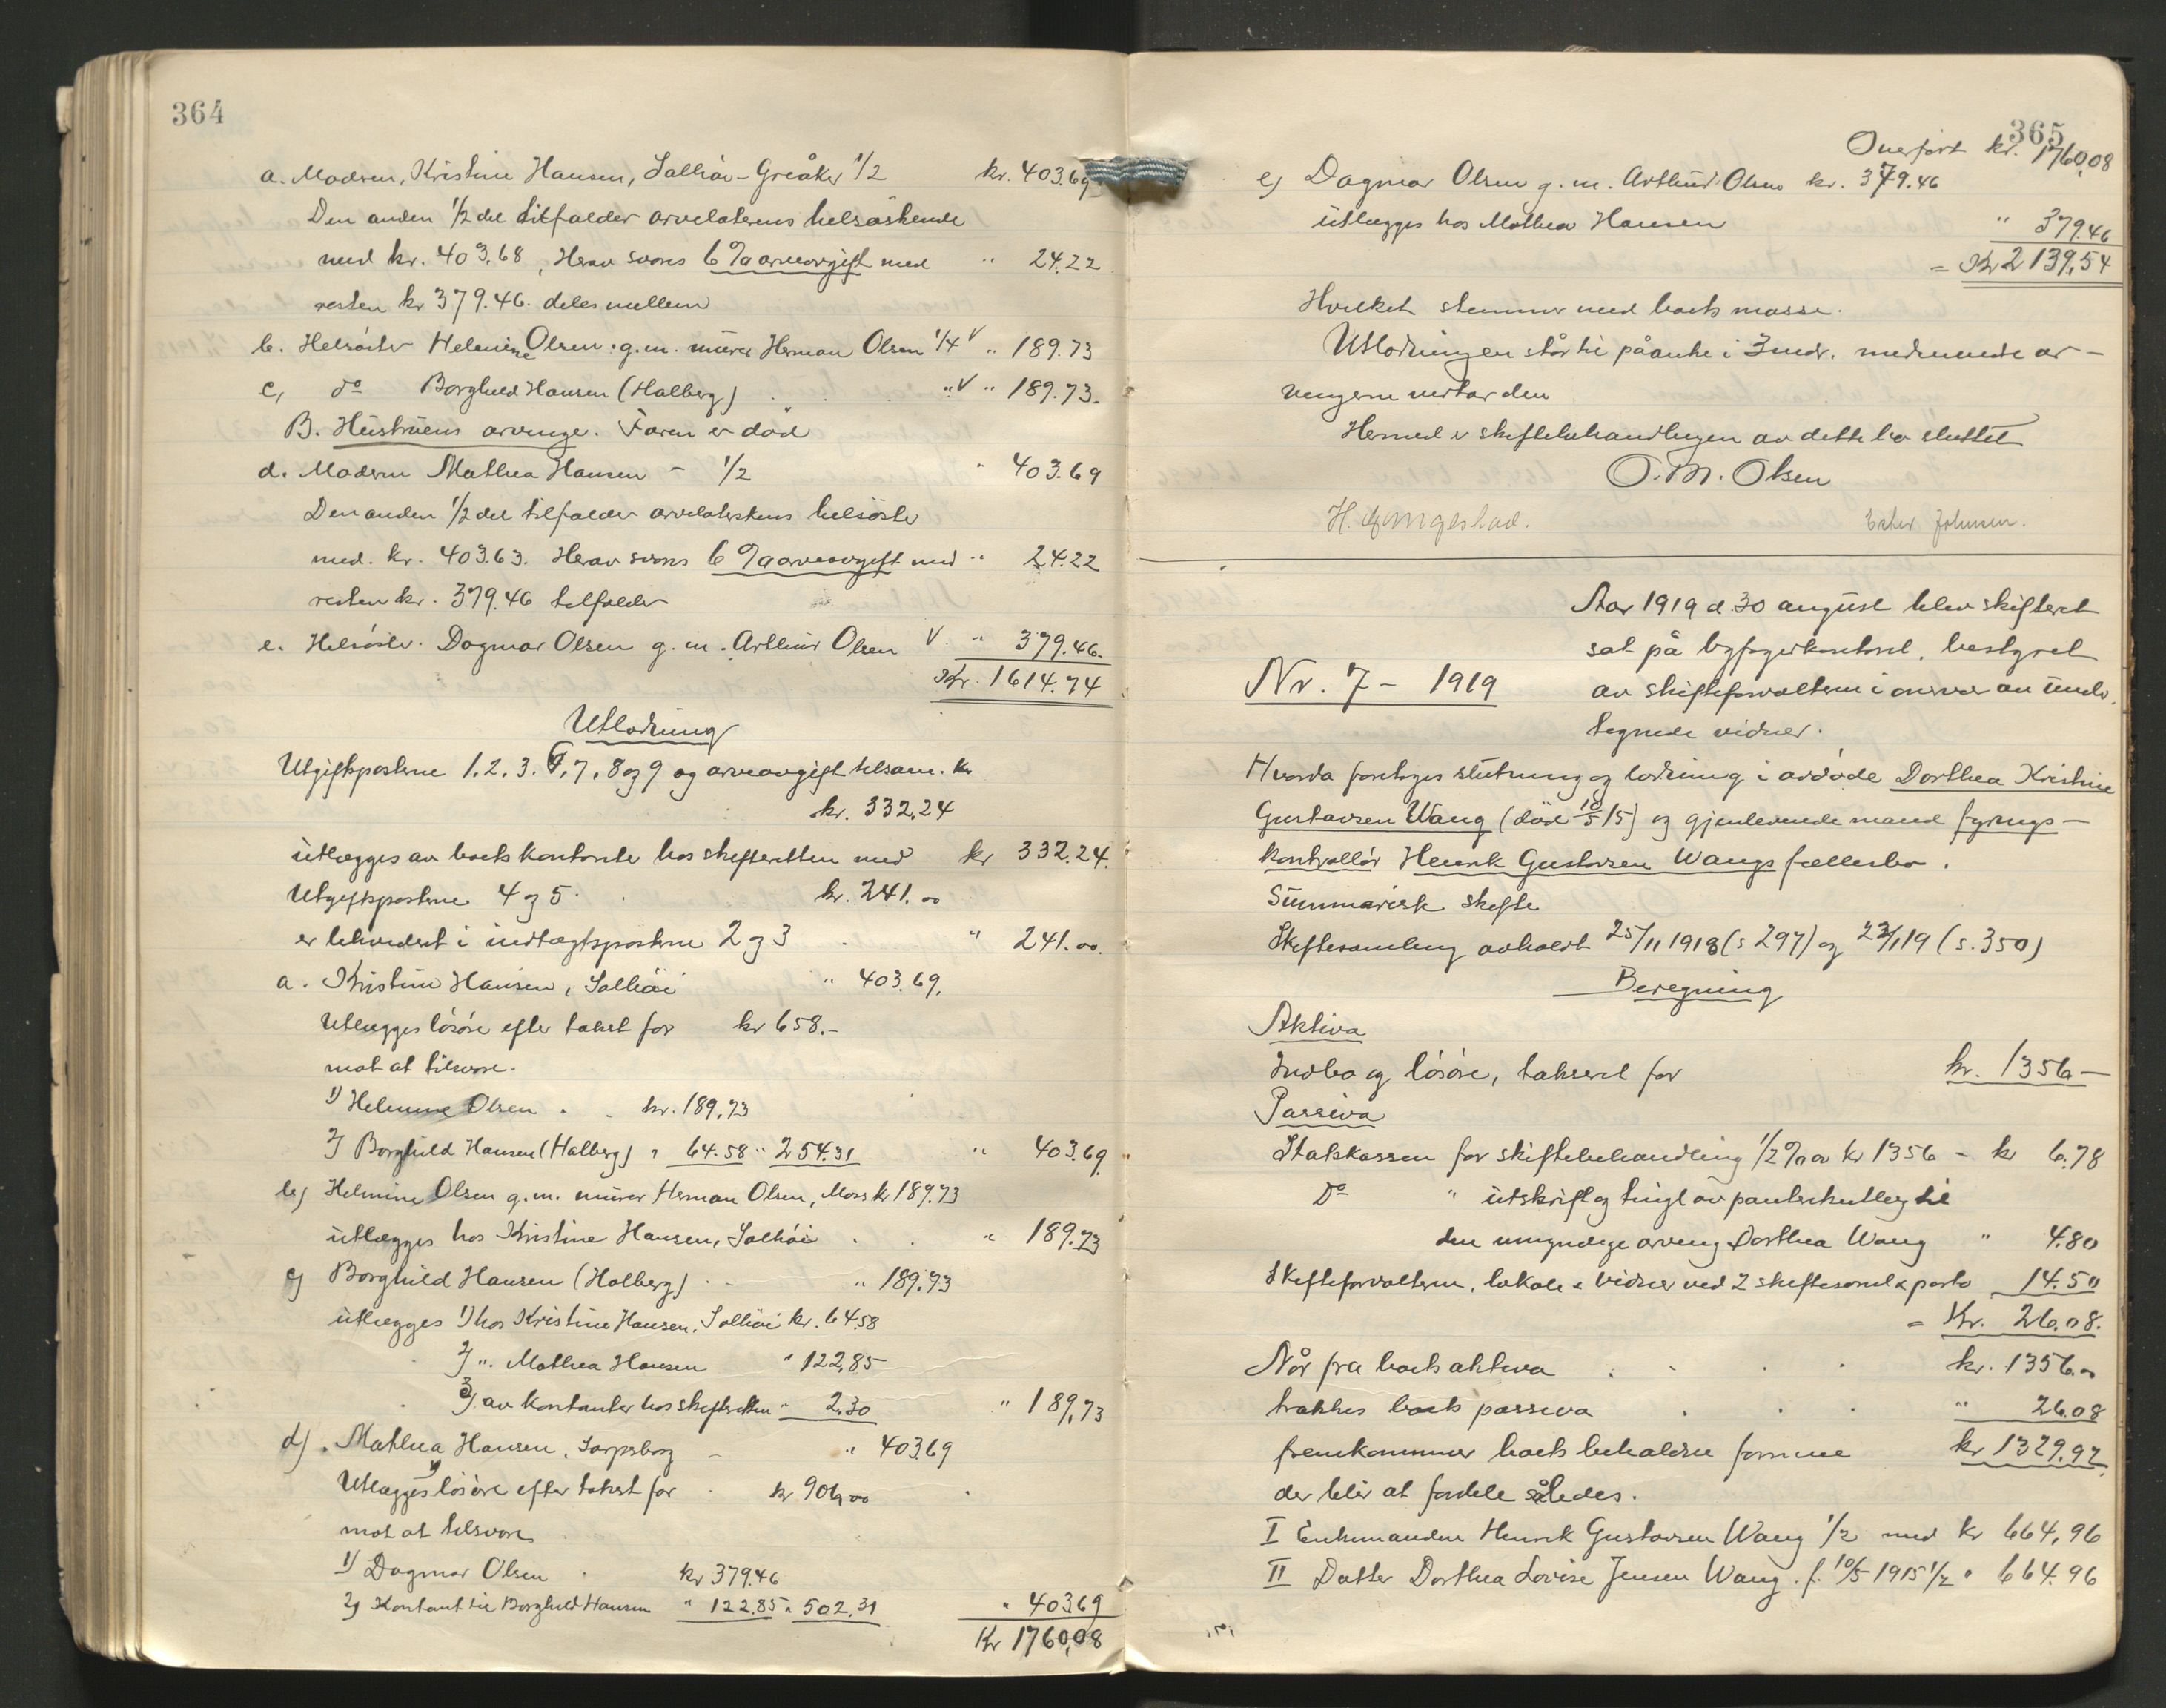 364
a. Modren, Kristine Hansen, Solhöi-Greåker 1/2 kr. 403.69
Den anden 1/2 del tilfalder arvelaterens helsöskende
med kr. 403.68, Herav svares 6 % arveavgift med " 24.22
resten kr 379.46. deles mellem
b. Helsöster Helmine Olsen g.m. murer Herman Olsen 1/4 V " 189.73
c, do Borghild Hansen (Halberg) . . "V " 189.73.
B. Hustruens arvinge. Faren er död
d. Modren Mathea Hansen - 1/2 " 403.69
Den anden 1/2 del tilfalder arvelaterskens helsöster
med. kr. 403.63. Herav svares 6 % arveavgift med " 24.22
resten kr. 379.46 tilfalder
e. Helsöster. Dagmar Olsen g. m. Arthur Olsen V " 379.46.
Kr. 1614.74
Utlodning
Utgiftsposterne 1. 2. 3. 6, 7, 8 og 9 og arveavgift tilsam. kr
kr. 332.24
utlægges av boets kontanter hos skifteretten med kr 332.24.
Utgiftsposterne 4 og 5. . kr. 241.00
er likvidert i indtægtsposterne 2 og 3 . " 241.00.
a. Kristine Hansen, Solhöi " 403.69.
Utlægges lösöre efter takst for kr 658.-
mot at tilsvare.
1) Helmine Olsen . . kr. 189,73
2) Borghild Hansen (Halberg) " 64.58 " 254.31 " 403.69
b) Helmine Olsen g.m. murer Herman Olsen, Moss kr 189.73
utlægges hos Kristine Hansen, Solhöi . . " 189.73
c) Borghild Hansen (Halberg) . - " 189.73
utlægges 1) hos Kristine Hansen, Solhöi kr. 64.58
2) ". Mathea Hansen " 122,85
3) av kontanter hos skifteretten " 2.30 " 189,73
d). Mathea Hansen, Sarpsborg - " 403.69
Utlægges lösöre efter takst for . kr 906,00
mot at tilsvare
1) Dagmar Olsen . kr 379.46
2) Kontant til Borghild Hansen " 122.85 " 502.31 " 403.69
Kr 1760,08
365
Overfört kr. 1760,08
e) Dagmar Olsen g. m. Arthur Olsen kr. 379.46
utlægges hos Mathea Hansen " 379.46
= Kr 2139,54
Hvilket stemmer med boets masse.
Utlodningen står til påanke i 3 mdr. medmindre ar-
vingerne vedtar den
Hermed er skiftebehandlingen av dette bo sluttet
O. M. Olsen
Ester Johnsen.
Aar 1919 d 30 august blev skifteret
sat på byfogedkontoret, bestyret
Nr. 7 - 1919 av skifteforvalteren i overvær av under
tegnede vidner.
Hvorda foretages slutning og lodning i avdöde Dorthea Kristine
Gustavsen Wang (död 10/5 15) og gjenlevende mand fyrings-
kontrollör Henrik Gustavsen Wangs fællesbo.
Summarisk skifte
Skiftesamling avholdt 25/11 1918 (s 297) og 23/1 19 (s. 350)
Beregning
Aktiva
Indbo og lösöre, taksert for kr. 1356 -
Passiva
Statskassen for skiftebehandling 1/2 % av kr 1356 - kr 6.78
Do " utskrift og tingl av panteutlæg til
den umyndige arving Dorthea Wang " 4.80
Skifteforvalteren, lokale & vidner ved 2 skiftesaml & porto 14.50
= Kr. 26.08.
Når fra boets aktiva . . . kr. 1356.00
trækkes boets passiva . . . " 26.08
fremkommer boets beholdne formue kr 1329.92
der blir at fordele således.
I Enkemanden Henrik Gustavsen Wang 1/2 med kr 664,96
II Datter Dorthea Lovise Jensen Wang. f. 10/5 1915 1/2 " 664.96